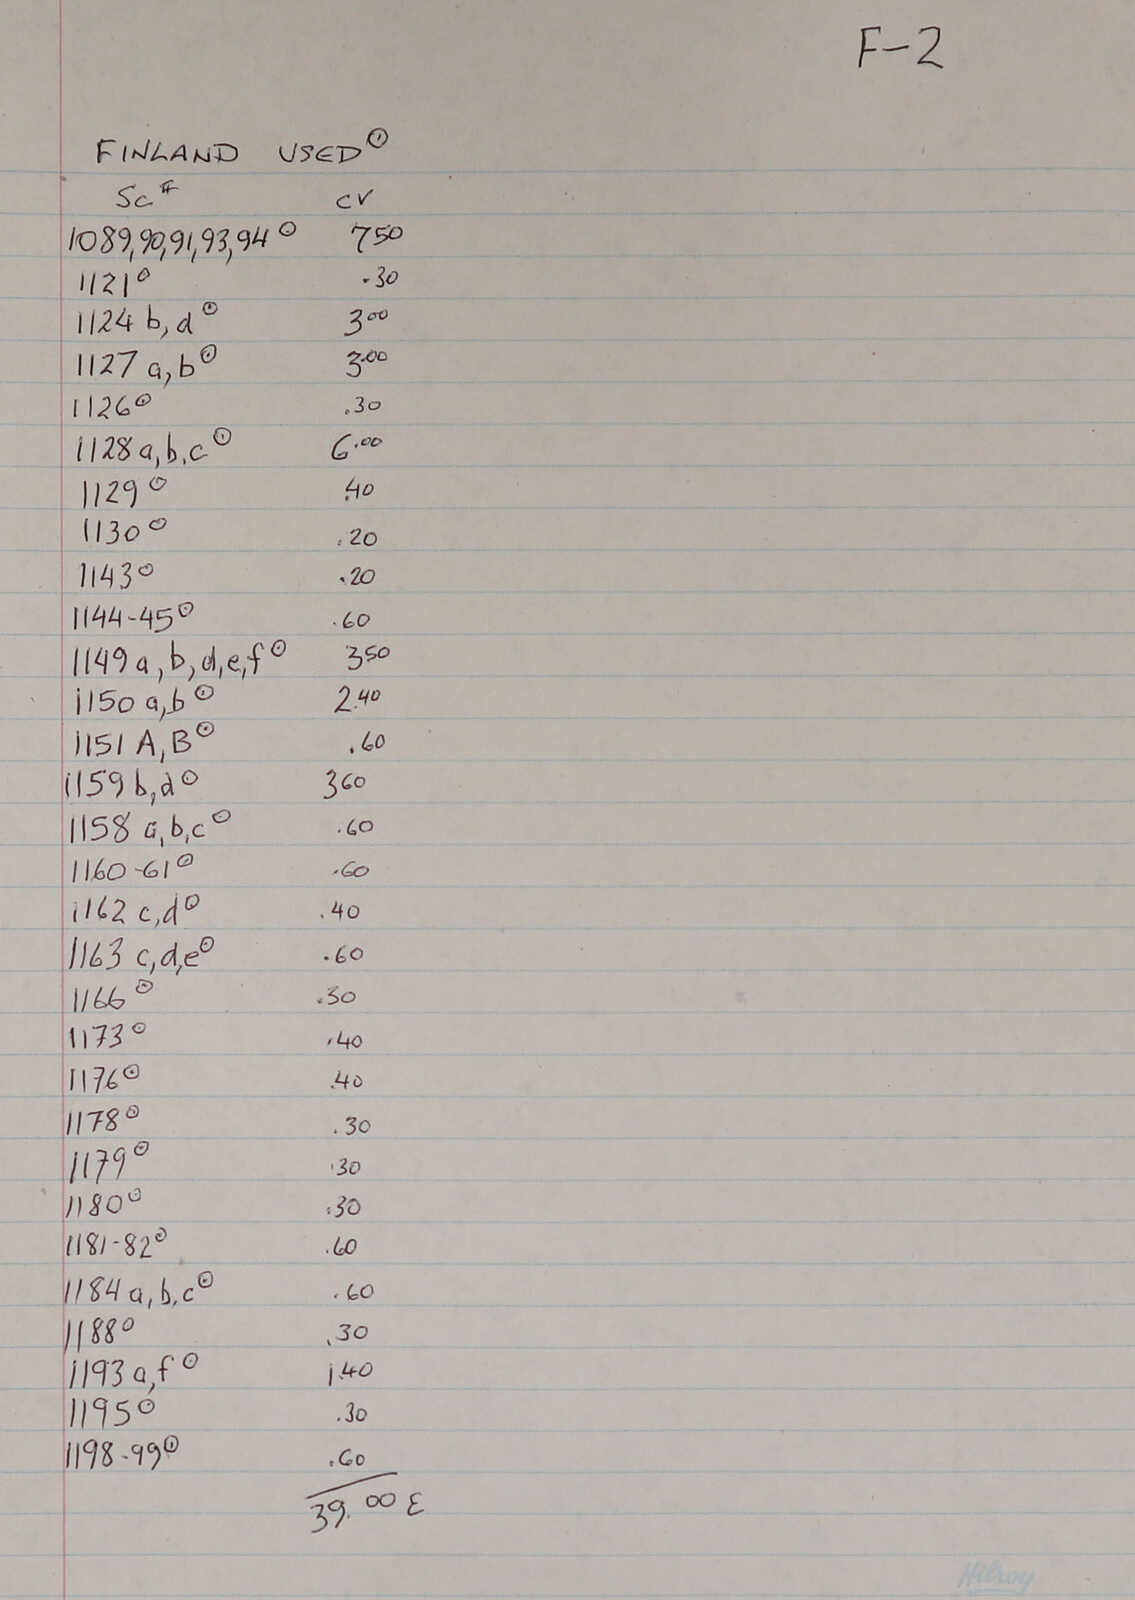 F-2
FINLAND USED ⊙
Sc# CV
1089,90,91,93,94 ⊙ 7 50
1121 ⊙ .30
1124 b,d ⊙ 3 00
1127 a,b ⊙ 3.00
1126 ⊙ .30
1128 a,b,c ⊙ 6.00
1129 ⊙ .40
1130 ⊙ .20
1143 ⊙ .20
1144-45 ⊙ .60
1149 a,b,d,e,f ⊙ 3 50
1150 a,b ⊙ 2.40
1151 A,B ⊙ .60
1159 b,d ⊙ 3 60
1158 a,b,c ⊙ .60
1160-61 ⊙ .60
1162 c,d ⊙ .40
1163 c,d,e ⊙ .60
1166 ⊙ .30
1173 ⊙ .40
1176 ⊙ .40
1178 ⊙ .30
1179 ⊙ .30
1180 ⊙ .30
1181-82 ⊙ .60
1184 a,b,c ⊙ .60
1188 ⊙ .30
1193 a,f ⊙ 1.40
1195 ⊙ .30
1198-99 ⊙ .60
39.00 £
Hilroy